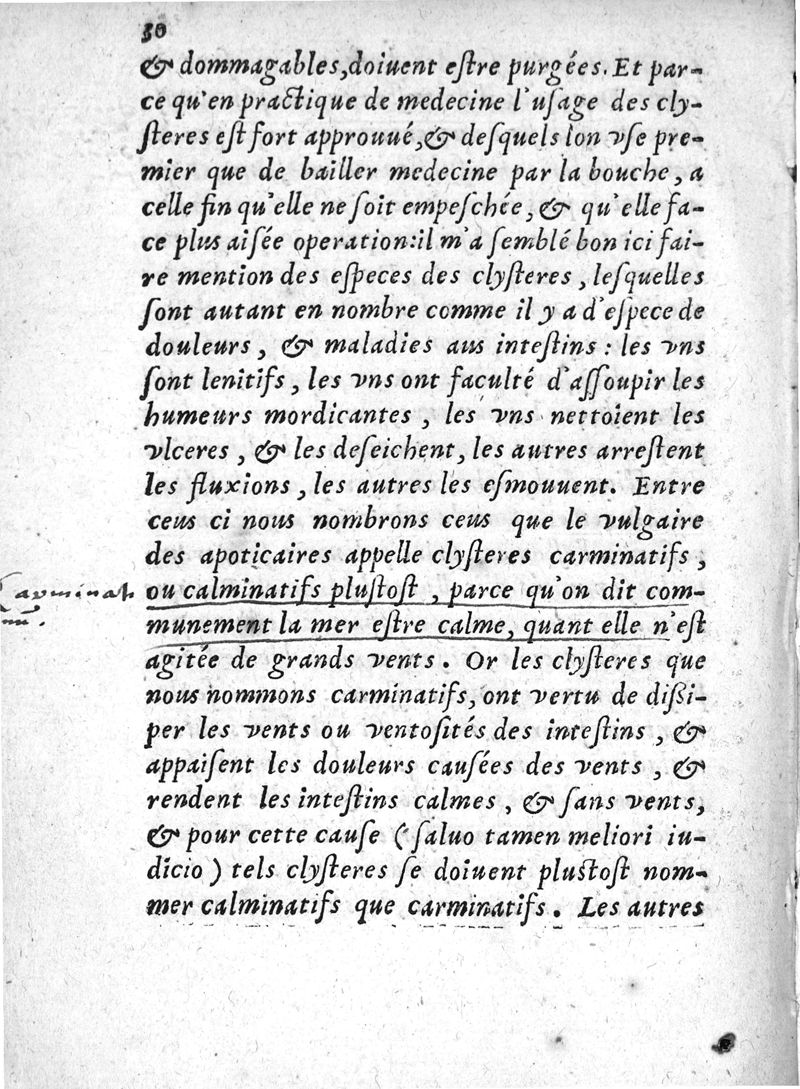 50
& dommagables,doiuent eſtre purgées. Et par-
ce qu'en practique de medecine l'uſage des cly-
ſteres eſt fort approuué,& deſquels lon vſe pre-
mier que de bailler medecine par la bouche, a
celle fin qu'elle ne ſoit empeſchée, & qu'elle fa-
ce plus aiſée operation:il m'a ſemblé bon ici fai-
re mention des eſpeces des clyſteres, leſquelles
ſont autant en nombre comme il y a d'eſpece de
douleurs, & maladies aus inteſtins : les vns
ſont lenitifs, les vns ont faculté d'aſſoupir les
humeurs mordicantes, les vns nettoient les
vlceres, & les deſeichent, les autres arreſtent
les fluxions, les autres les eſmouuent. Entre
ceus ci nous nombrons ceus que le vulgaire
des apoticaires appelle clyſteres carminatifs,
ou calminatifs pluſtoſt, parce qu'on dit com-
munement la mer eſtre calme, quant elle n'eſt
agitée de grands vents. Or les clyſteres que
nous nommons carminatifs, ont vertu de diſſi-
per les vents ou ventoſités des inteſtins, &
appaiſent les douleurs cauſées des vents, &
rendent les inteſtins calmes, & ſans vents,
& pour cette cauſe (ſaluo tamen meliori iu-
dicio) tels clyſteres ſe doiuent pluſtoſt nom-
mer calminatifs que carminatifs. Les autres